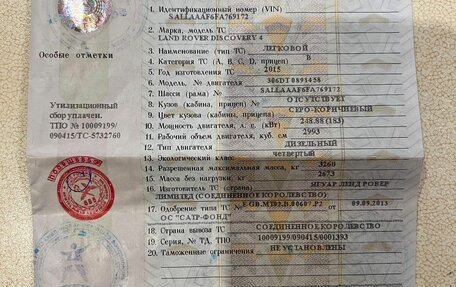 1. Идентификационный номер (VIN)
SALLAAAF6FA769172
2. Марка, модель ТС
LAND ROVER DISCOVERY 4
3. Наименование (тип ТС) ЛЕГКОВОЙ
4. Категория ТС (A, B, C, D, прицеп) B
5. Год изготовления ТС 2015
6. Модель, № двигателя 306DT 0895458
7. Шасси (рама) № SALLAAAF6FA769172
8. Кузов (кабина, прицеп) № ОТСУТСТВУЕТ
9. Цвет кузова (кабины, прицепа) СЕРО-КОРИЧНЕВЫЙ
10. Мощность двигателя, л. с. (кВт) 248.88(183)
11. Рабочий объем двигателя, куб. см 2993
12. Тип двигателя ДИЗЕЛЬНЫЙ
13. Экологический класс ЧЕТВЕРТЫЙ
14. Разрешенная максимальная масса, кг 3260
15. Масса без нагрузки, кг 2673
16. Изготовитель ТС (страна) ЯГУАР ЛЕНД РОВЕР
ЛИМИТЕД (СОЕДИНЕННОЕ КОРОЛЕВСТВО)
17. Одобрение типа ТС № 09.09.2013
ОС "САТР-ФОНД"
18. Страна вывоза ТС СОЕДИНЕННОЕ КОРОЛЕВСТВО
19. Серия, № ТД, ТПО 10009199/090415/0001393
20. Таможенные ограничения НЕ УСТАНОВЛЕНЫ
Особые отметки
Утилизационный
сбор уплачен.
ТПО № 10009199/
090415/ТС-5732760